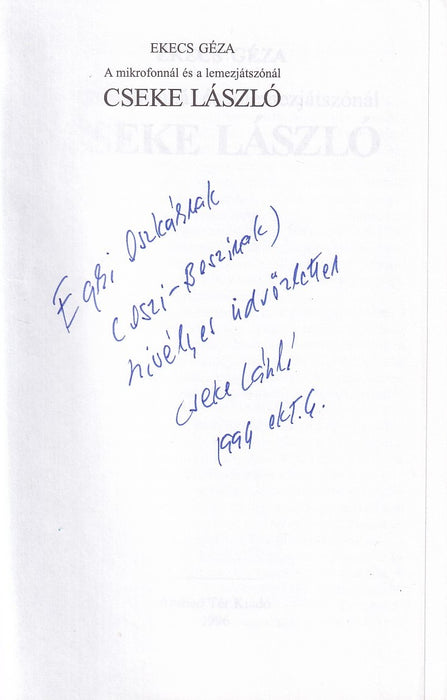 EKECS GÉZA
A mikrofonnál és a lemezjátszónál
CSEKE LÁSZLÓ
Egri Oszkárnak
(Oszi-Boszinak)
szívélyes üdvözlettel
Cseke László
okt. 6.
Tér Kiadó
1996